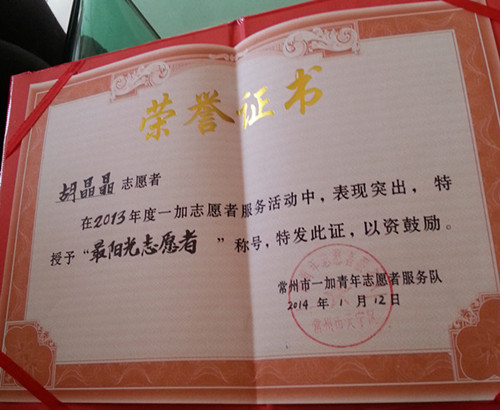 荣誉证书
胡晶晶 志愿者
在2013年度一加志愿者服务活动中，表现突出，特
授予“最阳光志愿者”称号，特发此证，以资鼓励。
常州市一加青年志愿者服务队
2014年1月12日